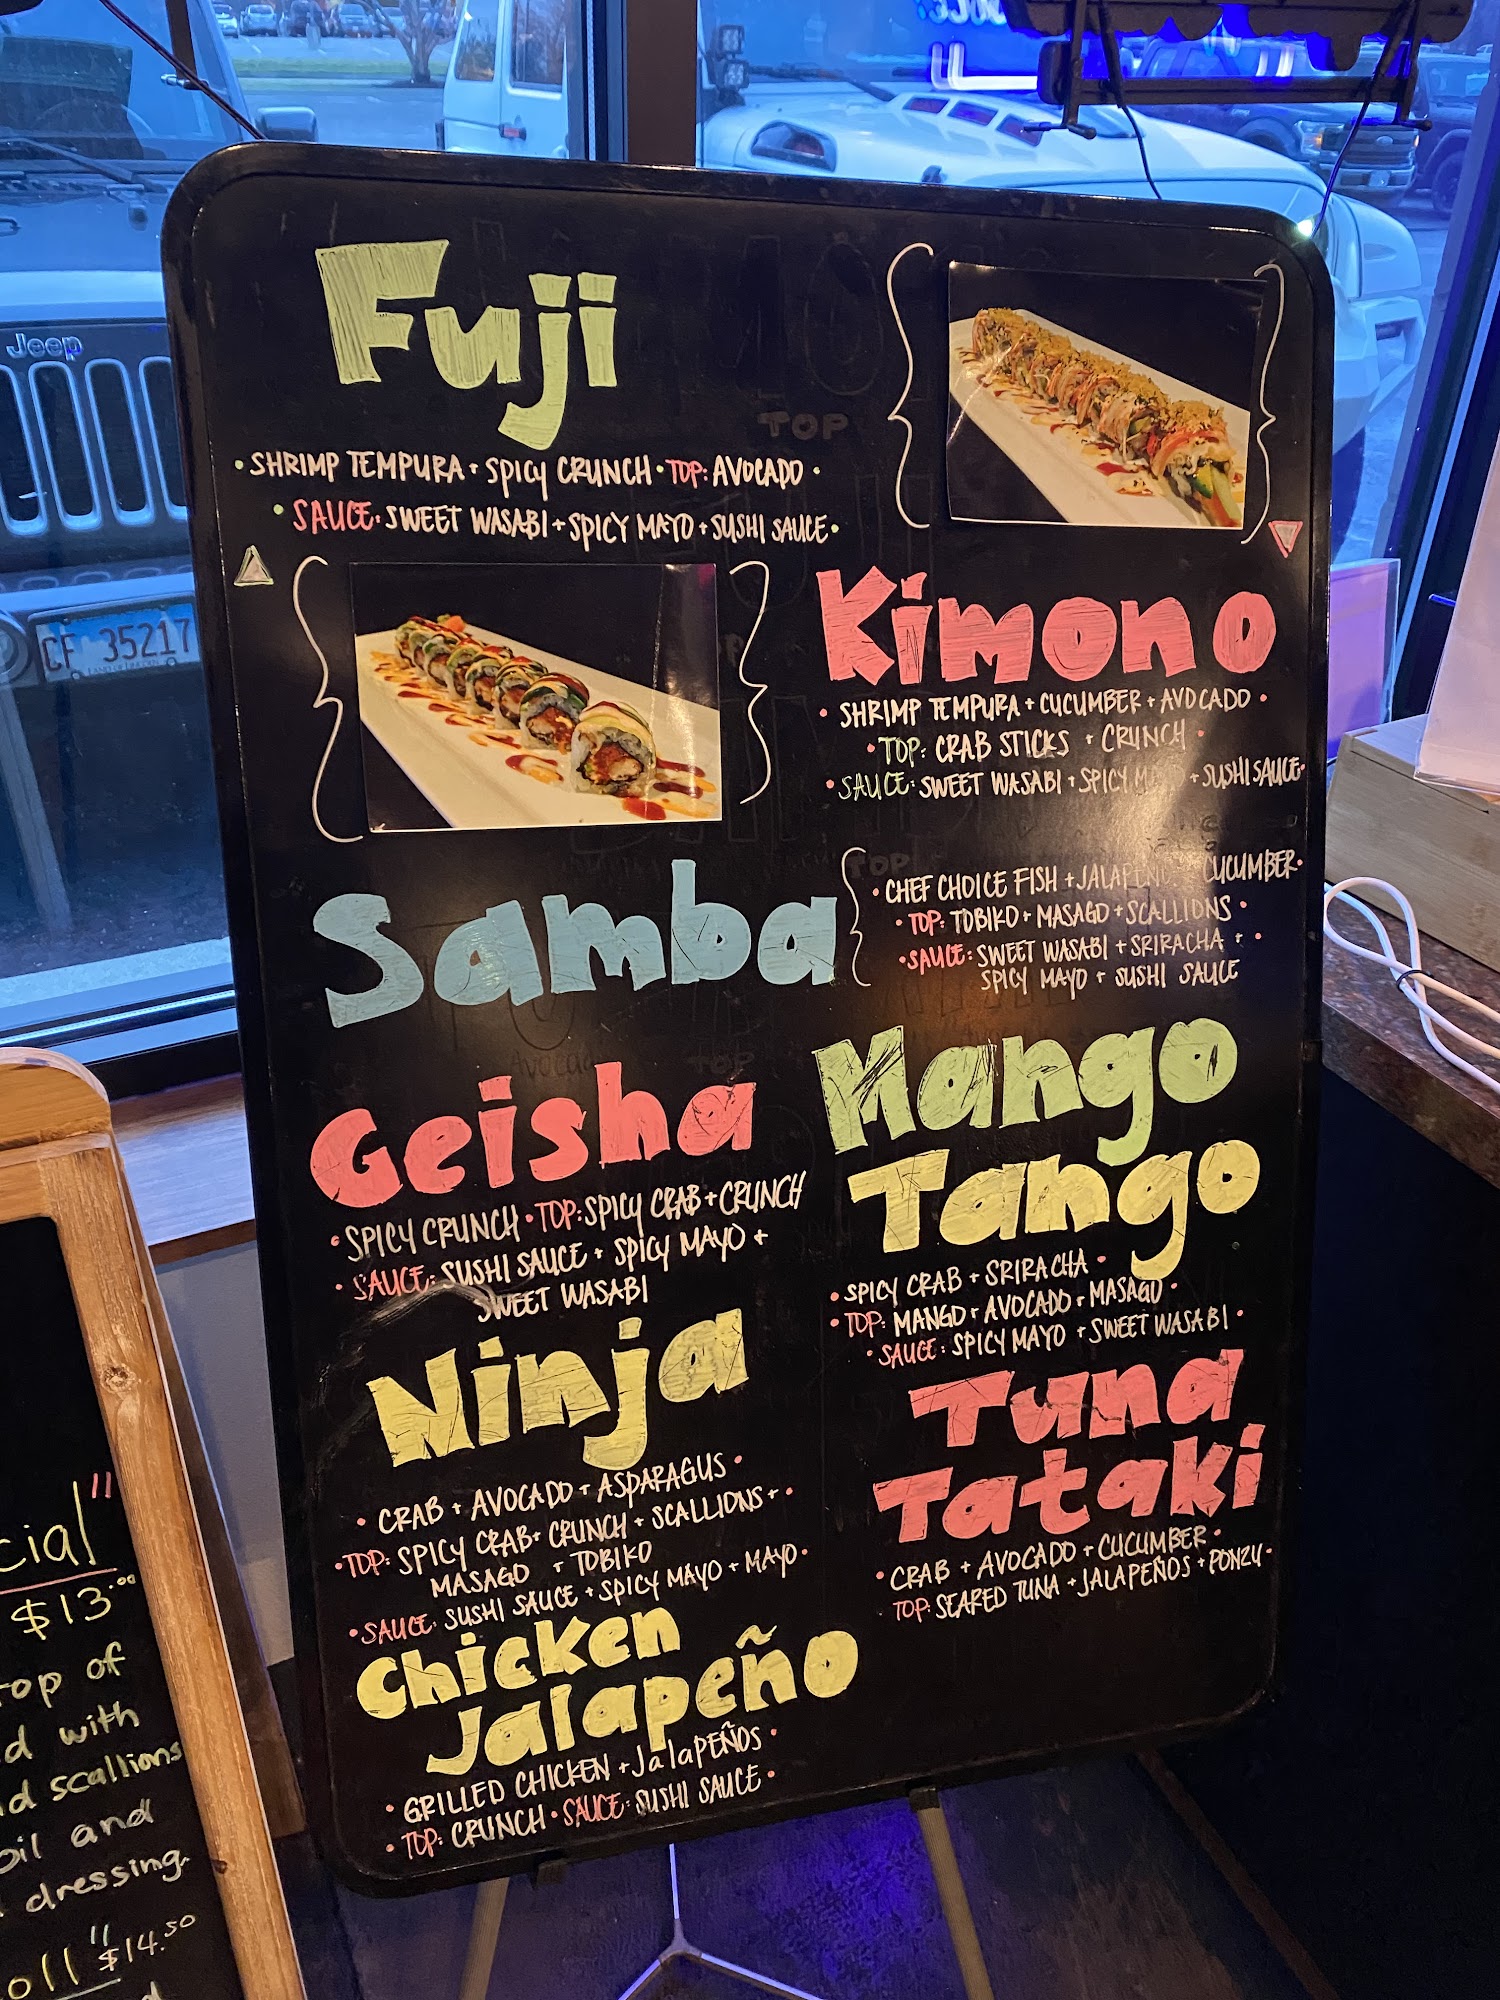 Jeep
CF 35217
Fuji
TOP
• SHRIMP TEMPURA + SPICY CRUNCH • TOP: AVOCADO •
• SAUCE: SWEET WASABI + SPICY MAYO + SUSHI SAUCE •
Kimono
• SHRIMP TEMPURA + CUCUMBER + AVOCADO •
• TOP: CRAB STICKS + CRUNCH •
• SAUCE: SWEET WASABI + SPICY MAYO + SUSHI SAUCE •
Samba
TOP
• CHEF CHOICE FISH + JALAPEÑO + CUCUMBER •
• TOP: TOBIKO + MASAGO + SCALLIONS •
• SAUCE: SWEET WASABI + SRIRACHA + •
SPICY MAYO + SUSHI SAUCE
Avocado
TOP
Geisha
• SPICY CRUNCH • TOP: SPICY CRAB + CRUNCH
• SAUCE: SUSHI SAUCE + SPICY MAYO +
SWEET WASABI
Mango
Tango
• SPICY CRAB + SRIRACHA •
• TOP: MANGO + AVOCADO + MASAGO •
• SAUCE: SPICY MAYO + SWEET WASABI •
Ninja
• CRAB + AVOCADO + ASPARAGUS •
• TOP: SPICY CRAB + CRUNCH + SCALLIONS + •
MASAGO + TOBIKO
• SAUCE: SUSHI SAUCE + SPICY MAYO + MAYO •
Tuna
Tataki
• CRAB + AVOCADO + CUCUMBER •
• TOP: SEARED TUNA + JALAPEÑOS + PONZU •
Chicken
Jalapeño
• GRILLED CHICKEN + JalaPEÑOS •
• TOP: CRUNCH • SAUCE: SUSHI SAUCE •
cial"
$13.00
top of
d with
d scallions
oil and
dressing.
oll" $14.50